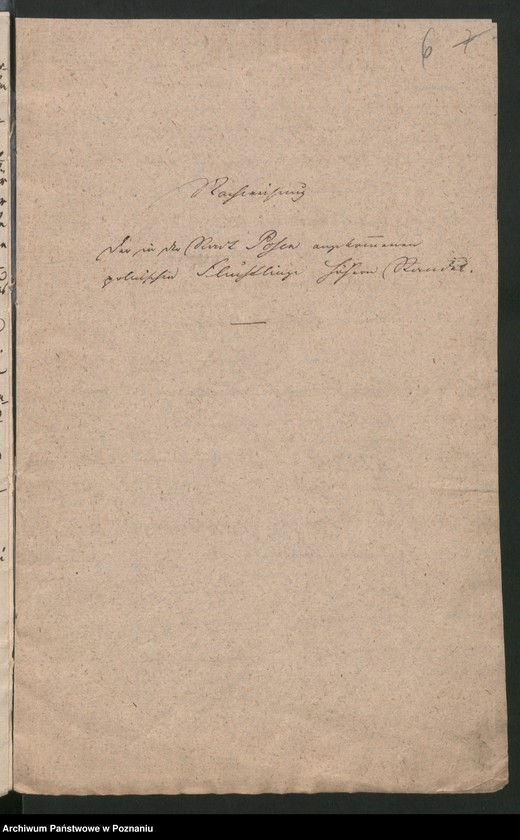 6 7
Nachweisung
der in der Stadt Posen angekommenen
polnischen Flüchtlinge höhern Standes.
Archiwum Państwowe w Poznaniu